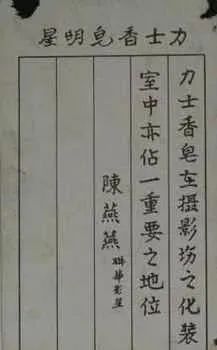 力士香皂明星
力士香皂在摄影场之化装
室中亦佔一重要之地位
陳燕燕 聯華影星